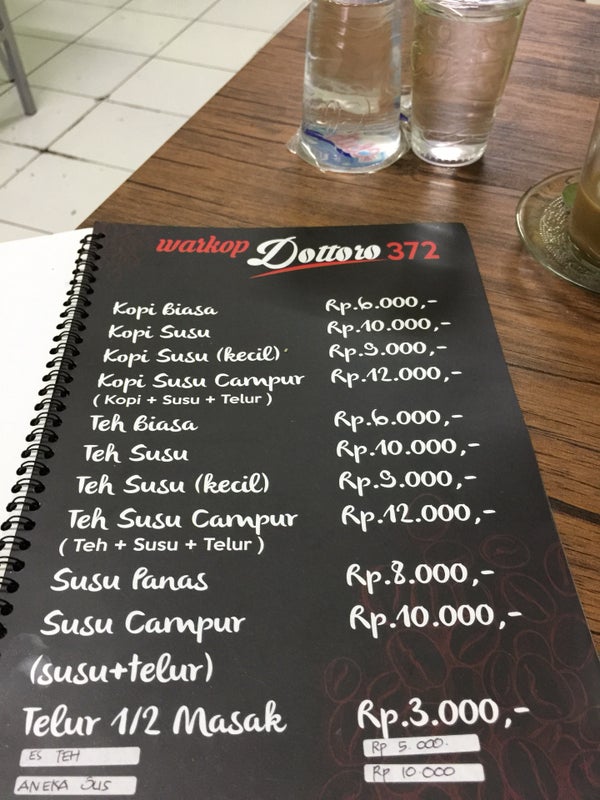 warkop Dottoro 372
Kopi Biasa Rp.6.000,-
Kopi Susu Rp.10.000,-
Kopi Susu (kecil) Rp.9.000,-
Kopi Susu Campur Rp.12.000,-
( Kopi + Susu + Telur )
Teh Biasa Rp.6.000,-
Teh Susu Rp.10.000,-
Teh Susu (kecil) Rp.9.000,-
Teh Susu Campur Rp.12.000,-
( Teh + Susu + Telur )
Susu Panas Rp.8.000,-
Susu Campur Rp.10.000,-
(susu+telur)
Telur 1/2 Masak Rp.3.000,-
ES TEH Rp 5.000.
ANEKA SUS Rp 10.000